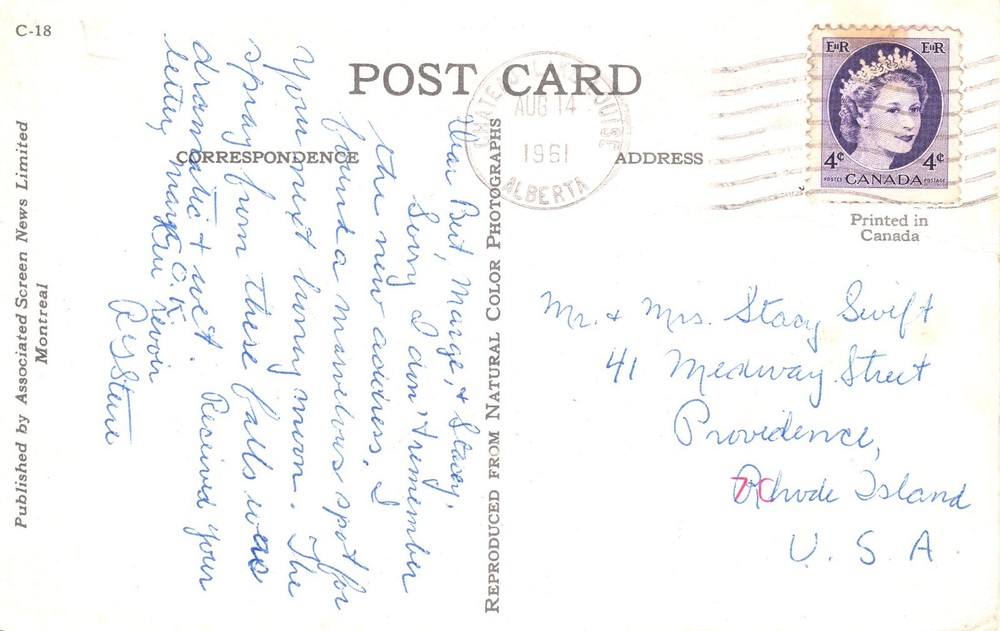 C-18
POST CARD
AUG 14
1961
ALBERTA
EIIR EIIR
4¢ 4¢
POSTES CANADA POSTAGE
Printed in
Canada
CORRESPONDENCE
ADDRESS
Published by Associated Screen News Limited
Montreal
REPRODUCED FROM NATURAL COLOR PHOTOGRAPHS
Dear Bert, Marge, & Stacy,
Sorry I don't remember
the new address. I
found a marvelous spot for
your next honey moon. The
spray from these falls was
dramatic & wet. Received your
letter, Marge. O.K.
Au revoir
Mr. & Mrs. Stacy Swift
41 Medway Street
Providence,
Rhode Island
U. S. A.
70